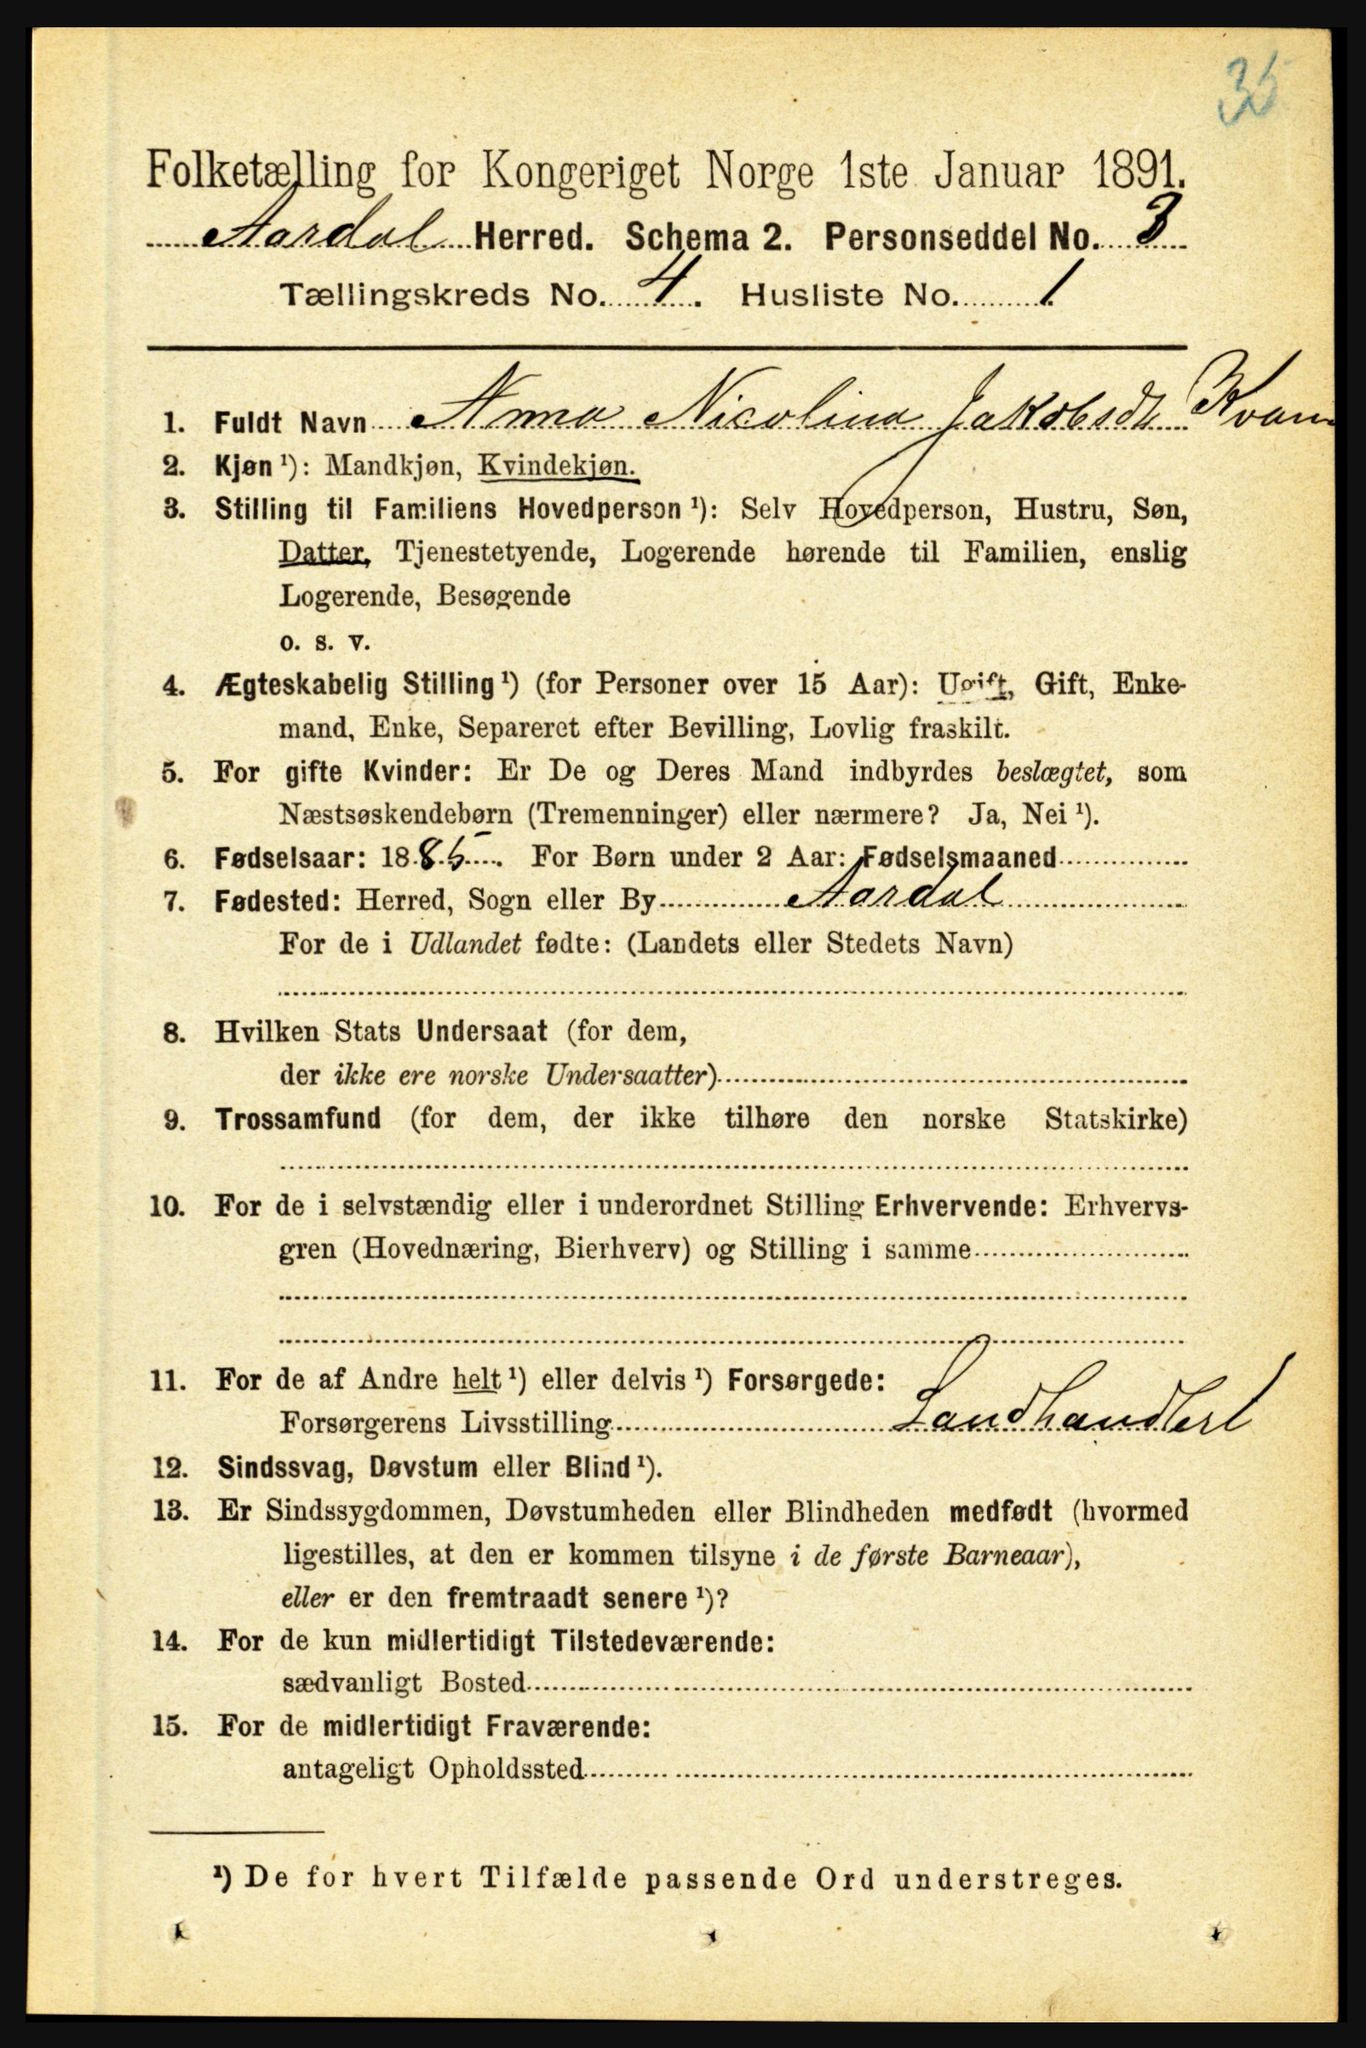 35
Folketælling for Kongeriget Norge 1ste Januar 1891.
Aardal Herred. Schema 2. Personseddel No. 3
Tællingskreds No. 4. Husliste No. 1
1. Fuldt Navn Anna Nicolina Jakobsdt Kvam
2. Kjøn ¹): Mandkjøn, Kvindekjøn.
3. Stilling til Familiens Hovedperson ¹): Selv Hovedperson, Hustru, Søn,
Datter, Tjenestetyende, Logerende hørende til Familien, enslig
Logerende, Besøgende
o. s. v.
4. Ægteskabelig Stilling ¹) (for Personer over 15 Aar): Ugift, Gift, Enke-
mand, Enke, Separeret efter Bevilling, Lovlig fraskilt.
5. For gifte Kvinder: Er De og Deres Mand indbyrdes beslægtet, som
Næstsøskendebørn (Tremenninger) eller nærmere? Ja, Nei ¹).
6. Fødselsaar: 1885. For Børn under 2 Aar: Fødselsmaaned
7. Fødested: Herred, Sogn eller By Aardal
For de i Udlandet fødte: (Landets eller Stedets Navn)
8. Hvilken Stats Undersaat (for dem,
der ikke ere norske Undersaatter)
9. Trossamfund (for dem, der ikke tilhøre den norske Statskirke)
10. For de i selvstændig eller i underordnet Stilling Erhvervende: Erhvervs-
gren (Hovednæring, Bierhverv) og Stilling i samme
11. For de af Andre helt ¹) eller delvis ¹) Forsørgede:
Forsørgerens Livsstilling Landhandleri
12. Sindssvag, Døvstum eller Blind ¹).
13. Er Sindssygdommen, Døvstumheden eller Blindheden medfødt (hvormed
ligestilles, at den er kommen tilsyne i de første Barneaar),
eller er den fremtraadt senere ¹)?
14. For de kun midlertidigt Tilstedeværende:
sædvanligt Bosted
15. For de midlertidigt Fraværende:
antageligt Opholdssted
¹) De for hvert Tilfælde passende Ord understreges.